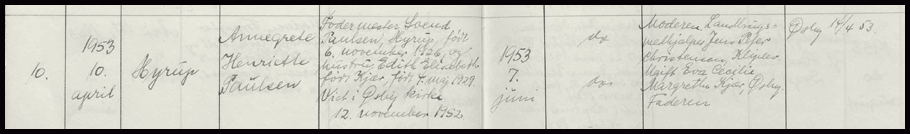 10.
1953
10.
april
Hyrup
Annegrete
Henriette
Paulsen
Fodermester Svend
Paulsen, Hyrup, født
6. november 1926, og
hustru Edith Elisabeth
født Kjær, født 7. maj 1929.
Viet i Øsby kirke
12. november 1952.
1953
7.
juni
do
do
Moderen, Landbrugs-
medhjælper Jens Peter
Christensen,
Gift Eva Cecilie
Margrethe Kjær, Øsby.
Faderen
Øsby 14/4 53.